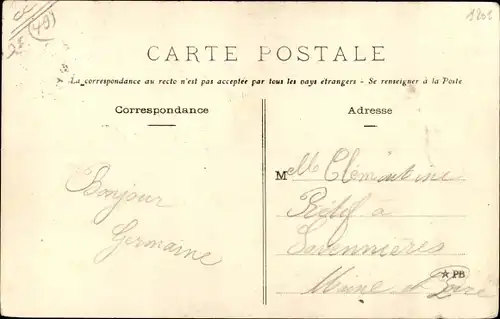 (49)
1201
CARTE POSTALE
La correspondance au recto n'est pas acceptée par tous les pays étrangers - Se renseigner à la Poste
Correspondance
Adresse
Melle Clémentine
à
Savennières
Maine et Loire
Bonjour
Germaine
★ PB